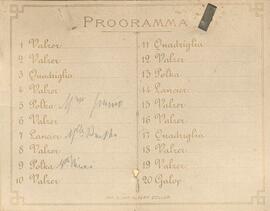 PROGRAMMA
1 Valzer
2 Valzer
3 Quadriglia
4 Valzer
5 Polka
6 Valzer
7 Lancier
8 Valzer
9 Polka
10 Valzer
11 Quadriglia
12 Valzer
13 Polka
14 Lancier
15 Valzer
16 Valzer
17 Quadriglia
18 Valzer
19 Valzer
20 Galop